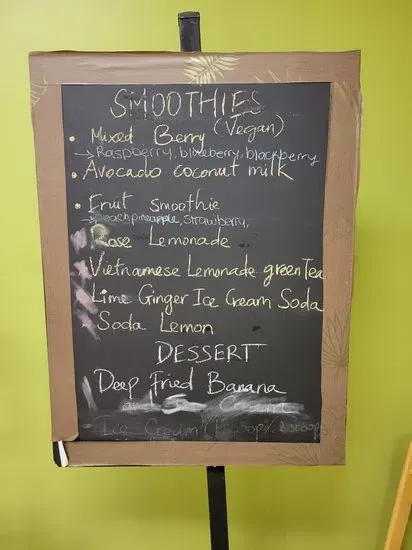 SMOOTHIES
• Mixed Berry (Vegan)
→ Raspberry, blueberry, blackberry
• Avocado coconut milk
• Fruit Smoothie
→ peach, pineapple, strawberry,
Rose Lemonade
Vietnamese Lemonade green Tea
Lime Ginger Ice Cream Soda
Soda Lemon
DESSERT
Deep Fried Banana
and
Ice Cream